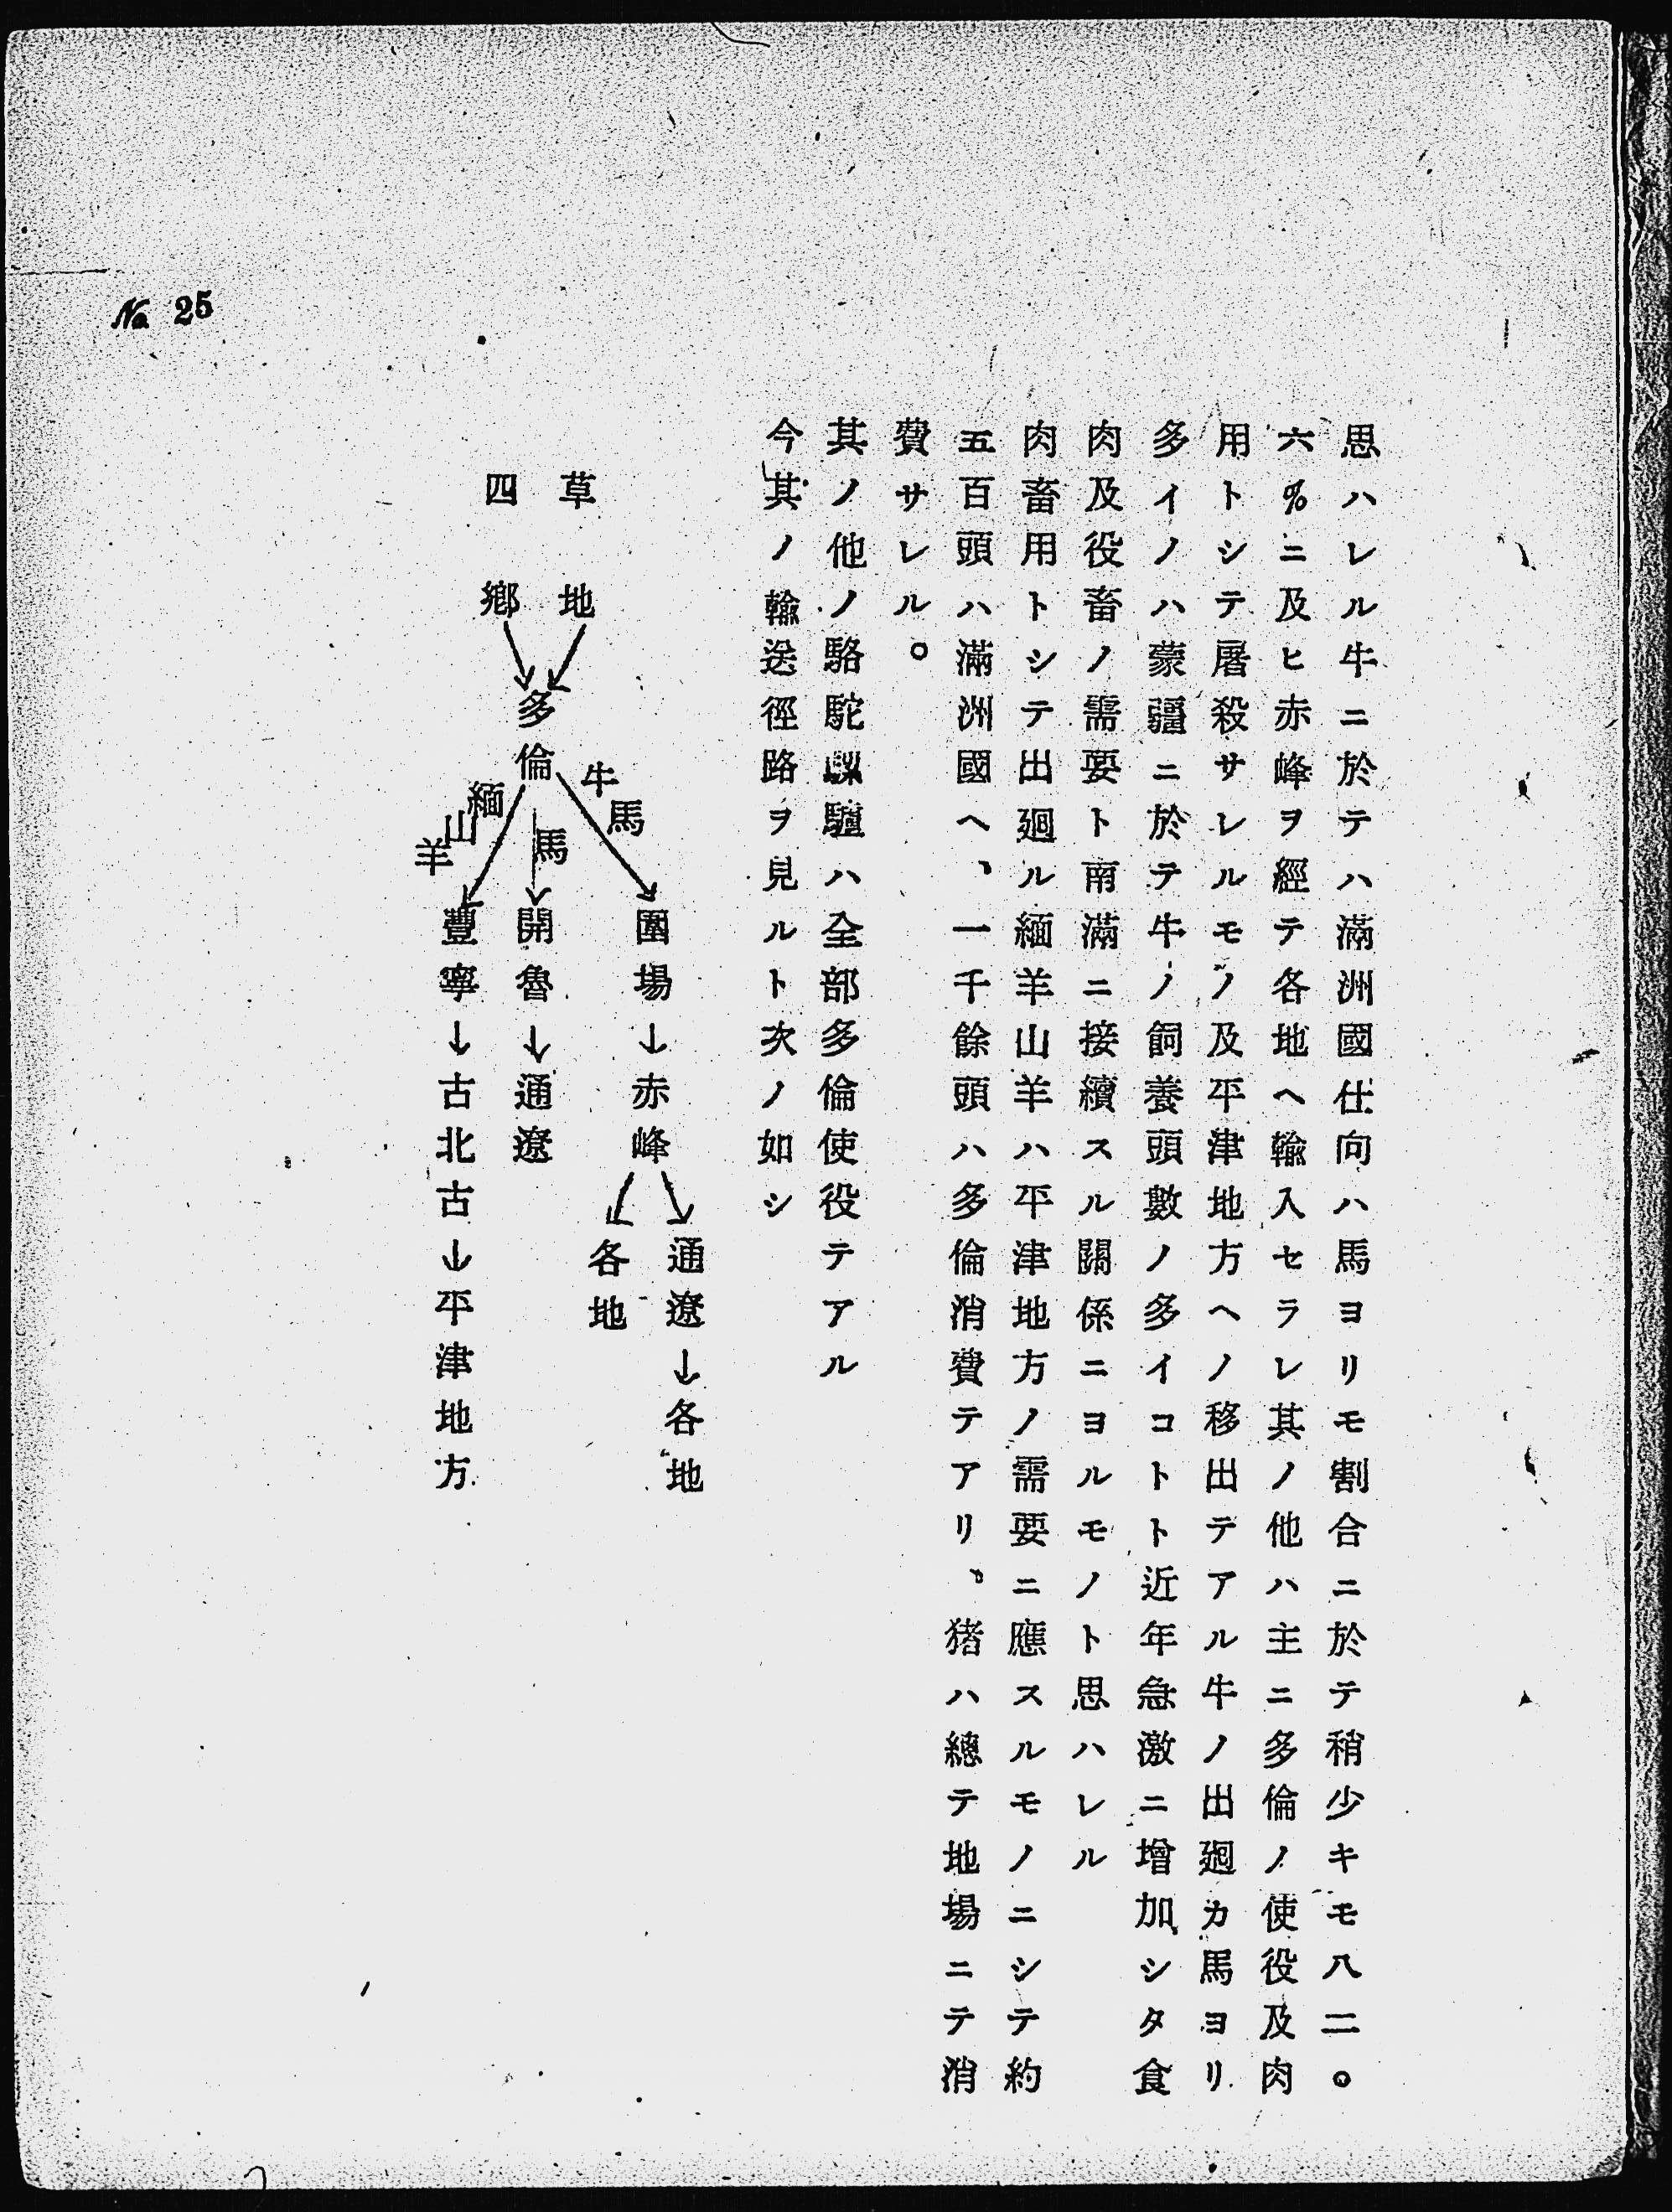 思ハレル牛ニ於テハ滿洲國仕向ハ馬ヨリモ割合ニ於テ稍少キモ八二。
六％ニ及ヒ赤峰ヲ經テ各地ヘ輸入セラレ其ノ他ハ主ニ多倫ノ使役及肉
用トシテ屠殺サレルモノ及平津地方ヘノ移出テアル牛ノ出廻カ馬ヨリ
多イノハ蒙疆ニ於テ牛ノ飼養頭數ノ多イコトト近年急激ニ增加シタ食
肉及役畜ノ需要ト南滿ニ接續スル關係ニヨルモノト思ハレル
肉畜用トシテ出廻ル緬羊山羊ハ平津地方ノ需要ニ應スルモノニシテ約
五百頭ハ滿洲國ヘ、一千餘頭ハ多倫消費テアリ、猪ハ總テ地場ニテ消
費サレル。
其ノ他ノ駱駝騾驢ハ全部多倫使役テアル
今其ノ輸送徑路ヲ見ルト次ノ如シ
草地
四鄉
↓
多倫
牛馬
↓
圍場↓赤峰
↓
通遼↓各地
↓
各地
馬
↓
開魯↓通遼
緬山羊
↓
豐寧↓古北古↓平津地方
№ 25